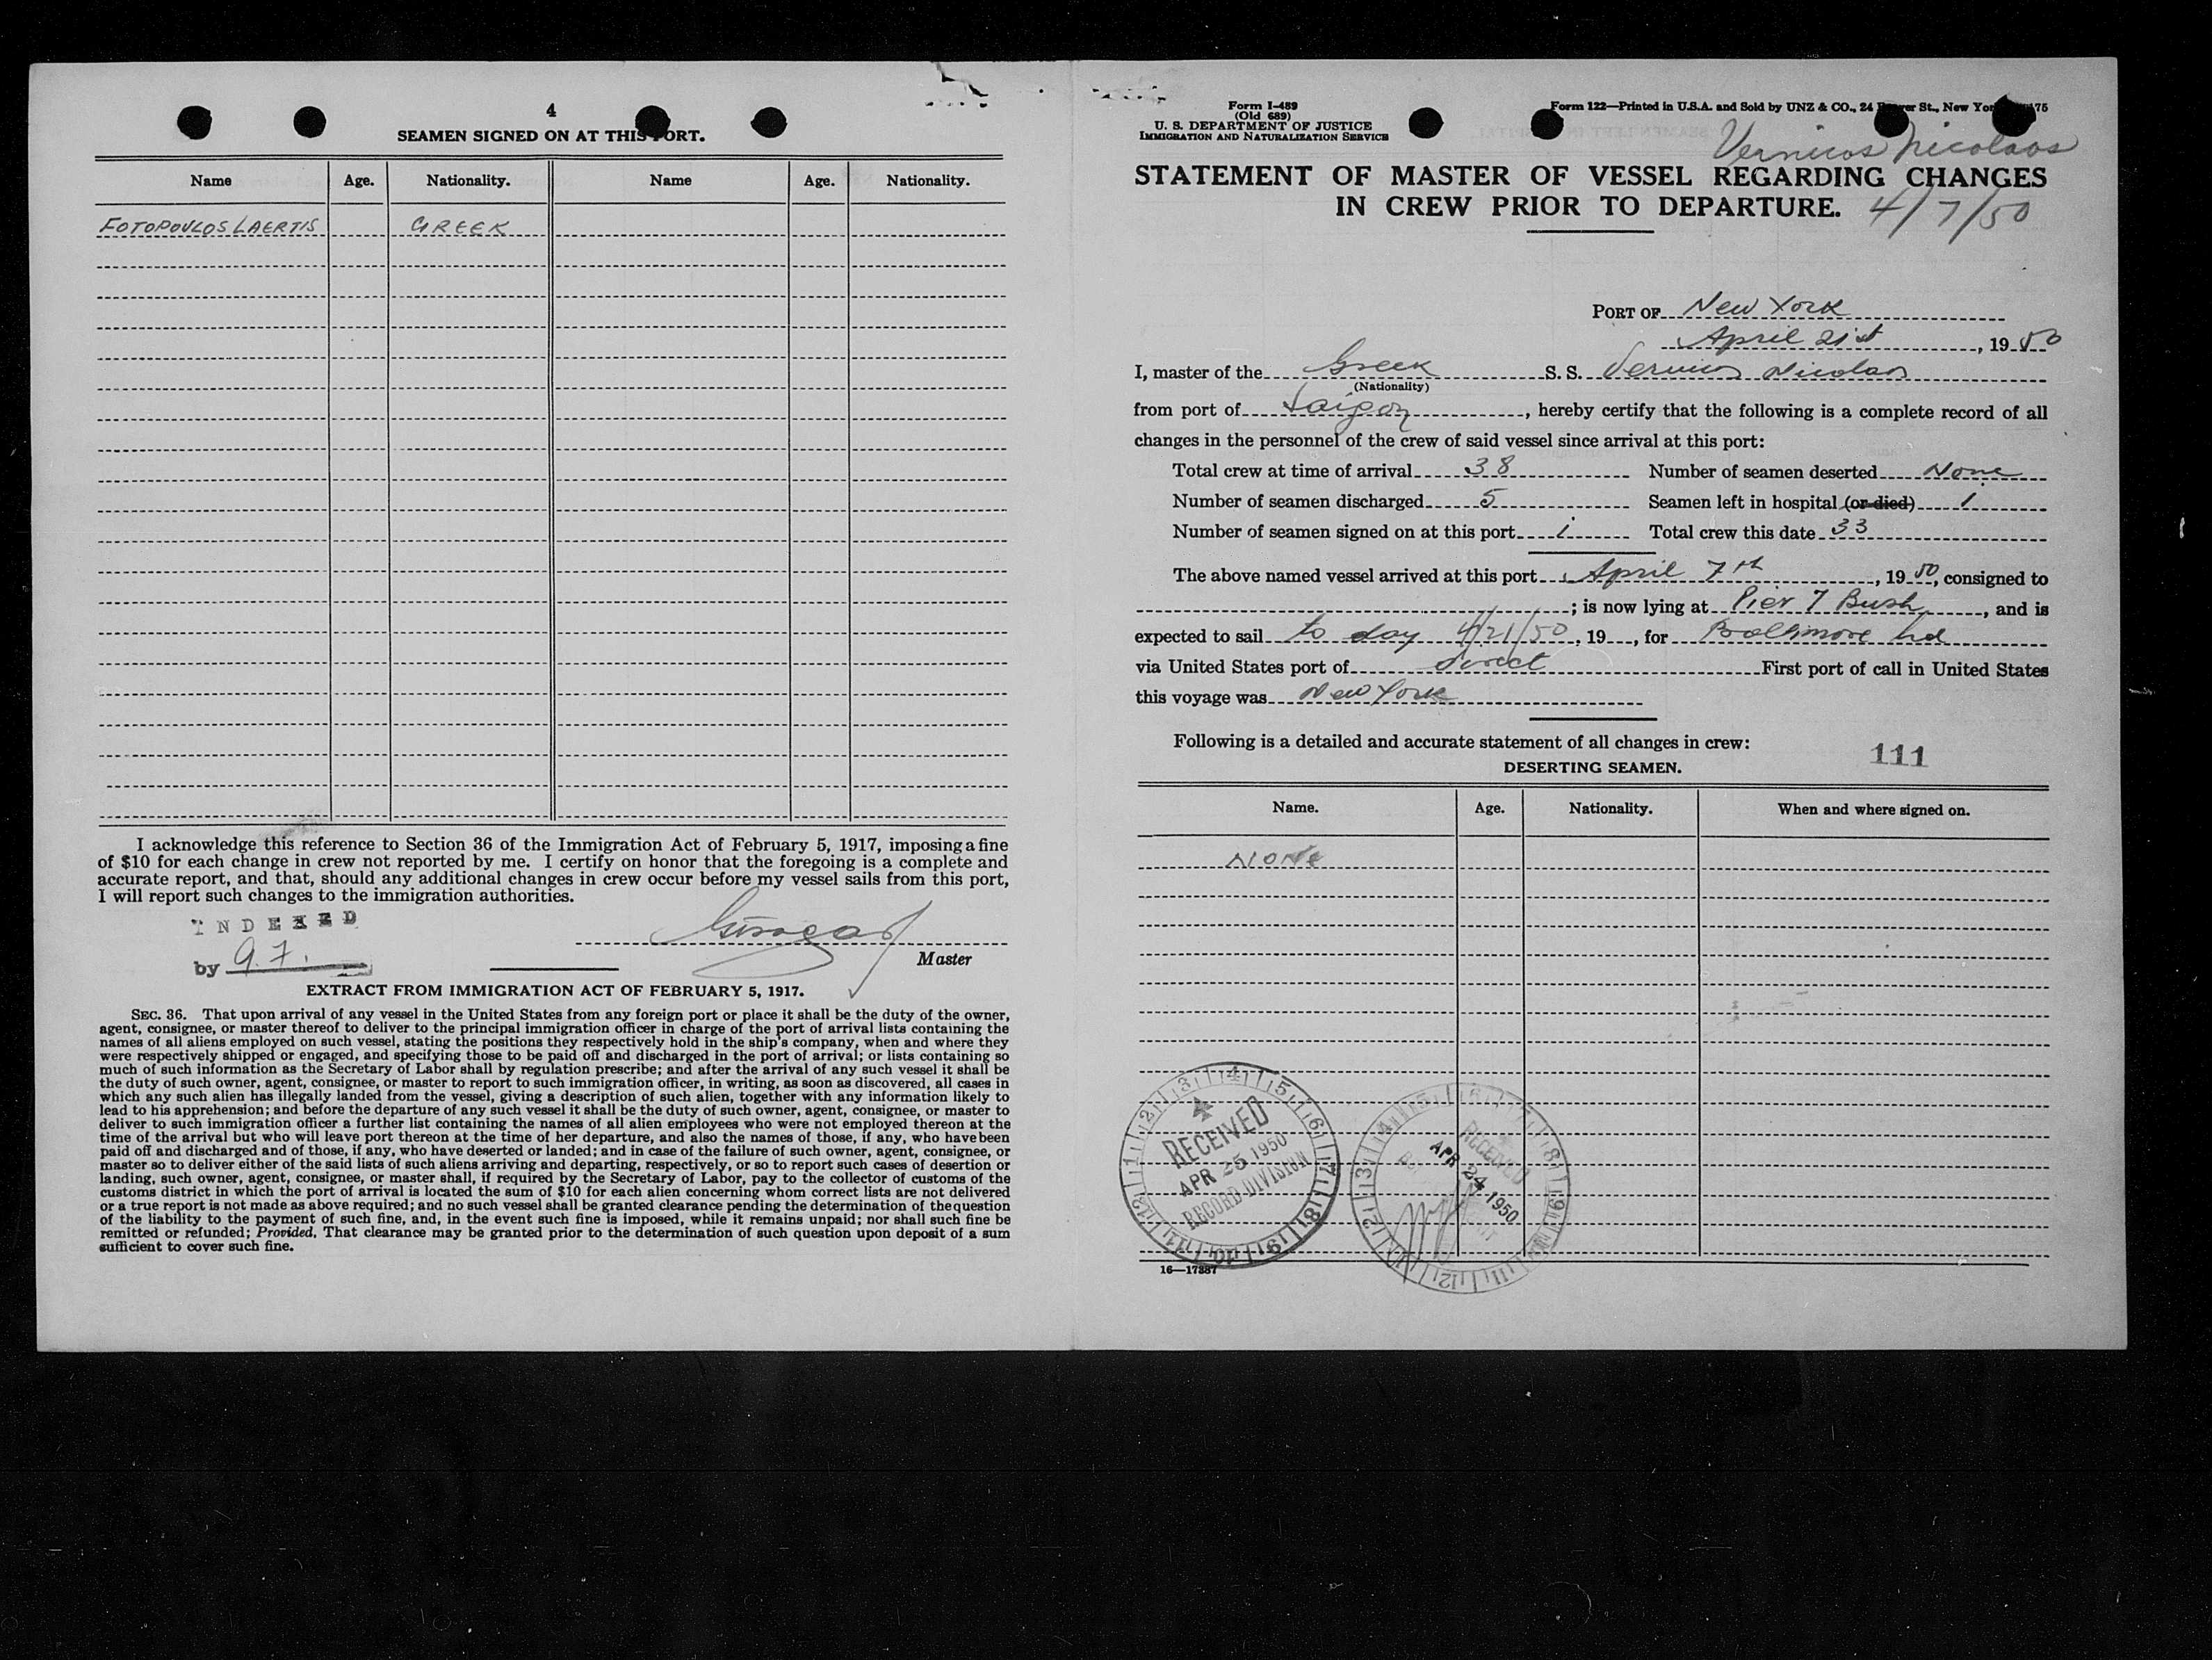 4
SEAMEN SIGNED ON AT THIS PORT.
Name Age. Nationality. Name Age. Nationality.
FOTOPOULOS LAERTIS GREEK
I acknowledge this reference to Section 36 of the Immigration Act of February 5, 1917, imposing a fine
of $10 for each change in crew not reported by me. I certify on honor that the foregoing is a complete and
accurate report, and that, should any additional changes in crew occur before my vessel sails from this port,
I will report such changes to the immigration authorities.
INDEXED
by
Master
EXTRACT FROM IMMIGRATION ACT OF FEBRUARY 5, 1917.
SEC. 36. That upon arrival of any vessel in the United States from any foreign port or place it shall be the duty of the owner,
agent, consignee, or master thereof to deliver to the principal immigration officer in charge of the port of arrival lists containing the
names of all aliens employed on such vessel, stating the positions they respectively hold in the ship's company, when and where they
were respectively shipped or engaged, and specifying those to be paid off and discharged in the port of arrival; or lists containing so
much of such information as the Secretary of Labor shall by regulation prescribe; and after the arrival of any such vessel it shall be
the duty of such owner, agent, consignee, or master to report to such immigration officer, in writing, as soon as discovered, all cases in
which any such alien has illegally landed from the vessel, giving a description of such alien, together with any information likely to
lead to his apprehension; and before the departure of any such vessel it shall be the duty of such owner, agent, consignee, or master to
deliver to such immigration officer a further list containing the names of all alien employees who were not employed thereon at the
time of the arrival but who will leave port thereon at the time of her departure, and also the names of those, if any, who have been
paid off and discharged and of those, if any, who have deserted or landed; and in case of the failure of such owner, agent, consignee, or
master so to deliver either of the said lists of such aliens arriving and departing, respectively, or so to report such cases of desertion or
landing, such owner, agent, consignee, or master shall, if required by the Secretary of Labor, pay to the collector of customs of the
customs district in which the port of arrival is located the sum of $10 for each alien concerning whom correct lists are not delivered
or a true report is not made as above required; and no such vessel shall be granted clearance pending the determination of the question
of the liability to the payment of such fine, and, in the event such fine is imposed, while it remains unpaid; nor shall such fine be
remitted or refunded; Provided, That clearance may be granted prior to the determination of such question upon deposit of a sum
sufficient to cover such fine.
Form I-489
(Old 689)
U. S. DEPARTMENT OF JUSTICE
IMMIGRATION AND NATURALIZATION SERVICE
Form 122—Printed in U.S.A. and Sold by UNZ & CO., 24 Beaver St., New York 75
Vernicos Nicolaos
STATEMENT OF MASTER OF VESSEL REGARDING CHANGES
IN CREW PRIOR TO DEPARTURE. 4/7/50
PORT OF New York
April 21st, 1950
I, master of the Greek S. S. Vernicos Nicolaos
(Nationality)
from port of Saigon, hereby certify that the following is a complete record of all
changes in the personnel of the crew of said vessel since arrival at this port:
Total crew at time of arrival 38 Number of seamen deserted None
Number of seamen discharged 5 Seamen left in hospital (or died) 1
Number of seamen signed on at this port 1 Total crew this date 33
The above named vessel arrived at this port April 7th, 1950, consigned to
; is now lying at Pier 7 Bush, and is
expected to sail to day 4/21/50, 19, for Baltimore Md
via United States port of direct First port of call in United States
this voyage was New York
Following is a detailed and accurate statement of all changes in crew:
111
DESERTING SEAMEN.
Name. Age. Nationality. When and where signed on.
NONE
RECEIVED
APR 25 1950
RECORD DIVISION
RECEIVED
APR 24 1950
16—17387